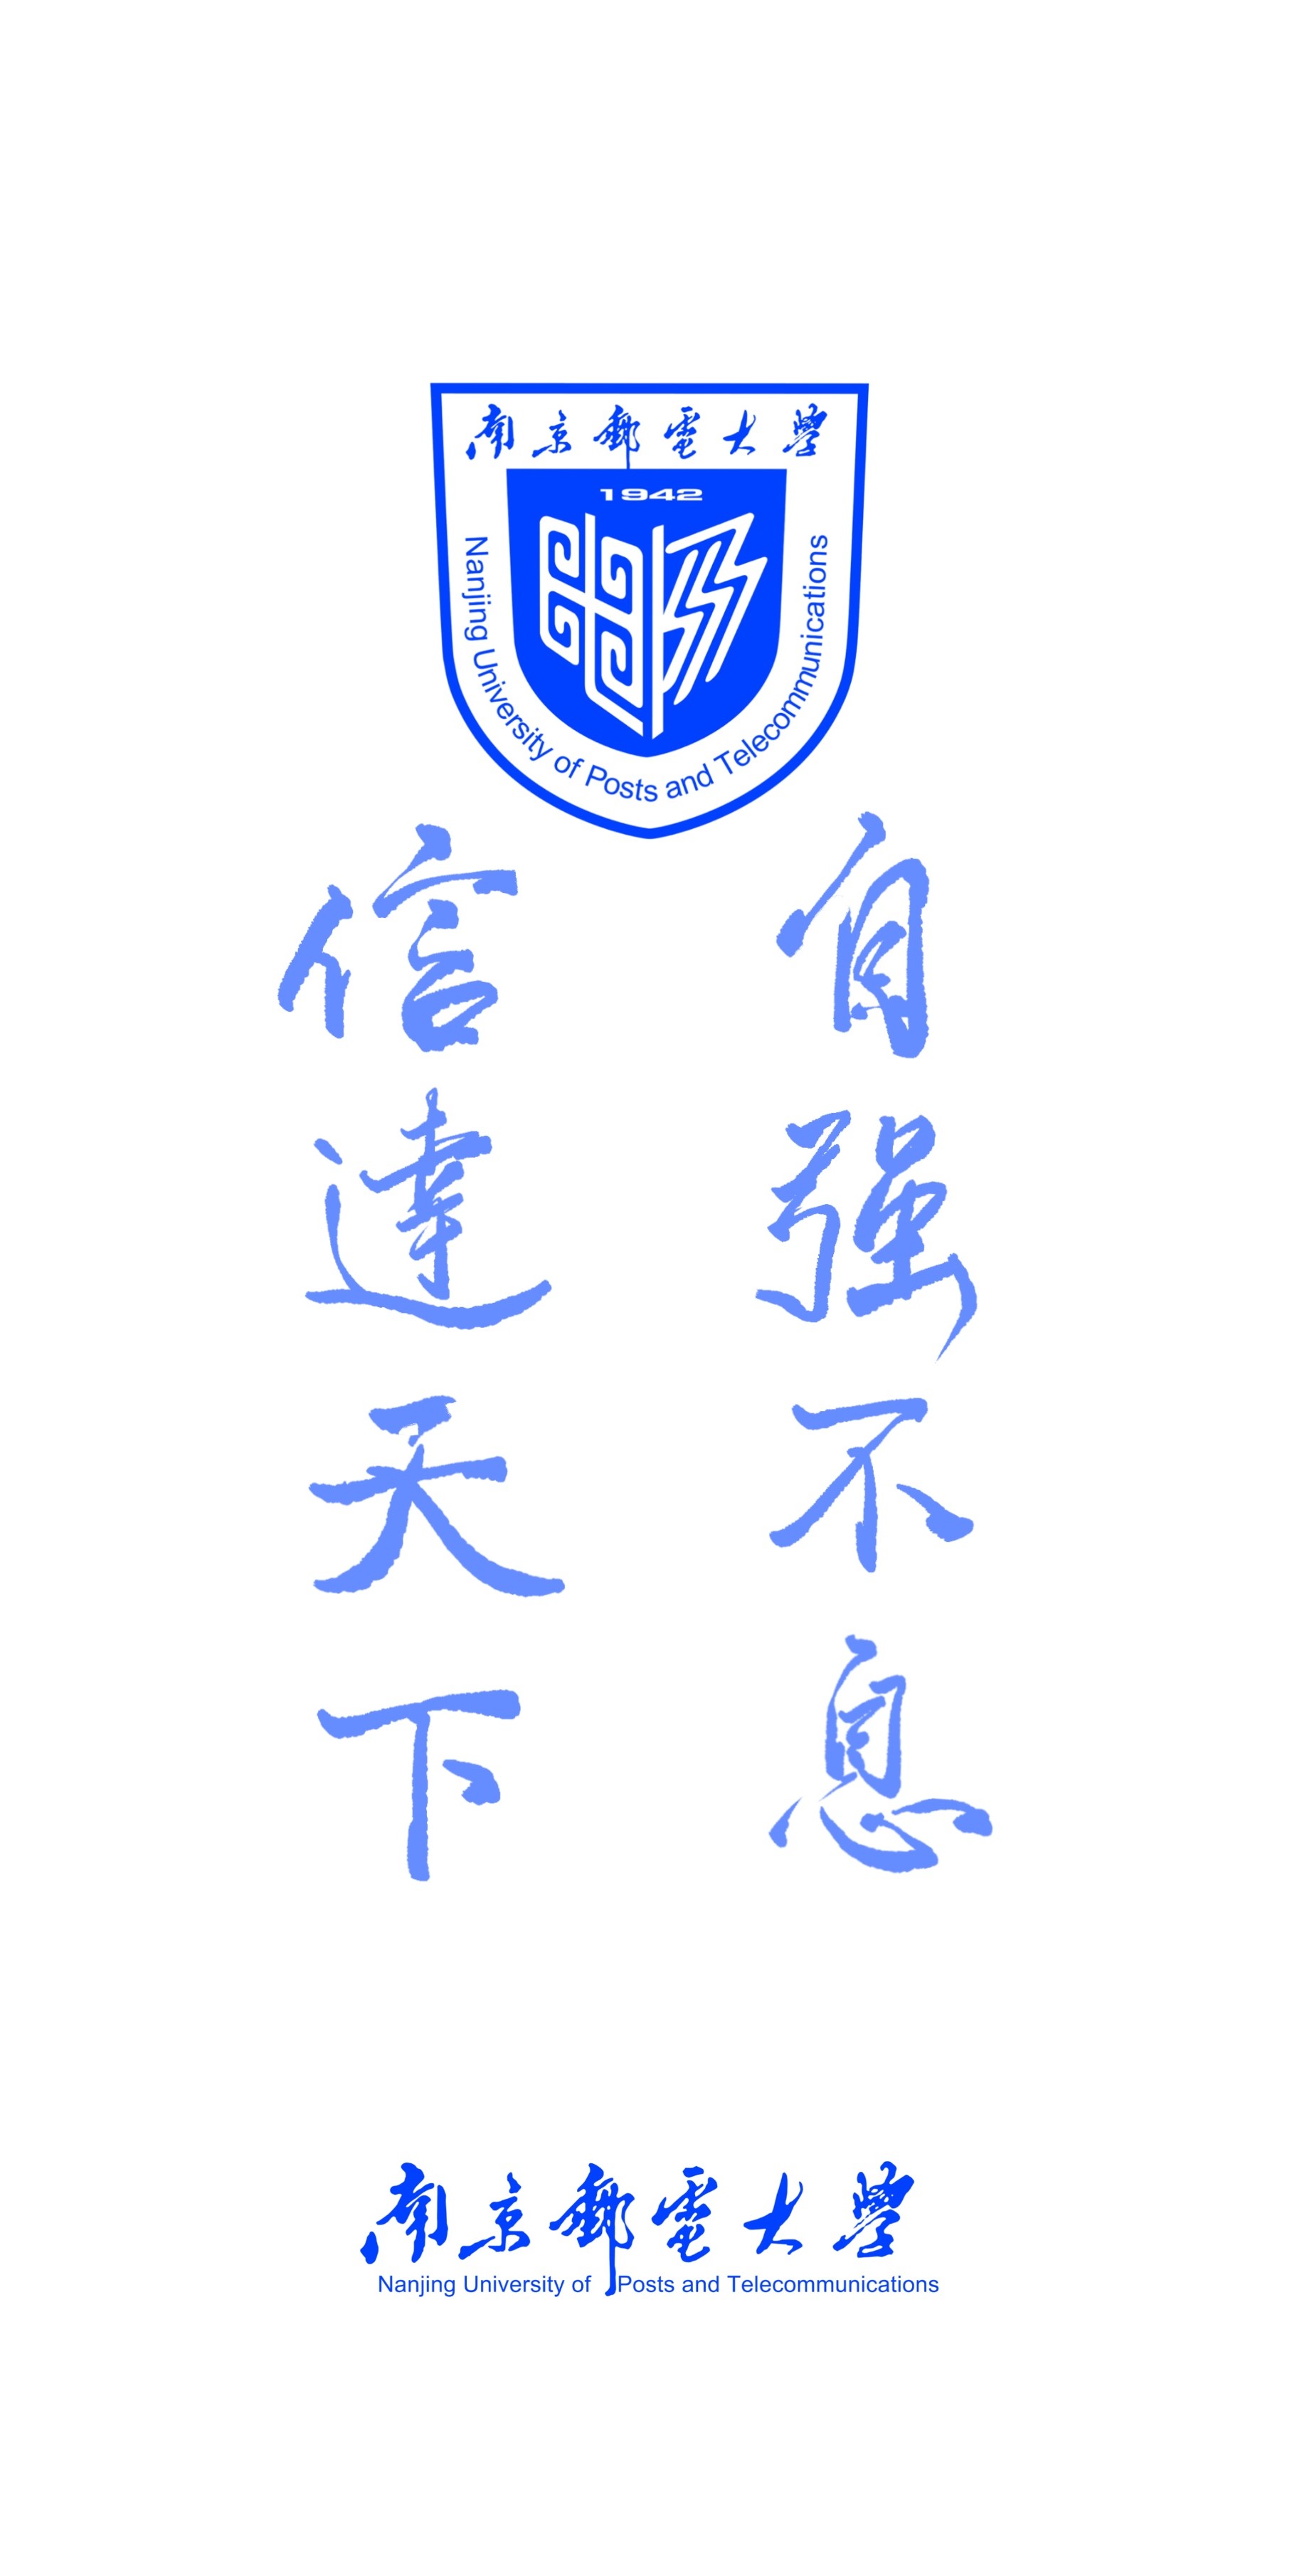 南京郵電大學
1942
Nanjing University of Posts and Telecommunications
自强不息
信達天下
南京郵電大學
Nanjing University of Posts and Telecommunications